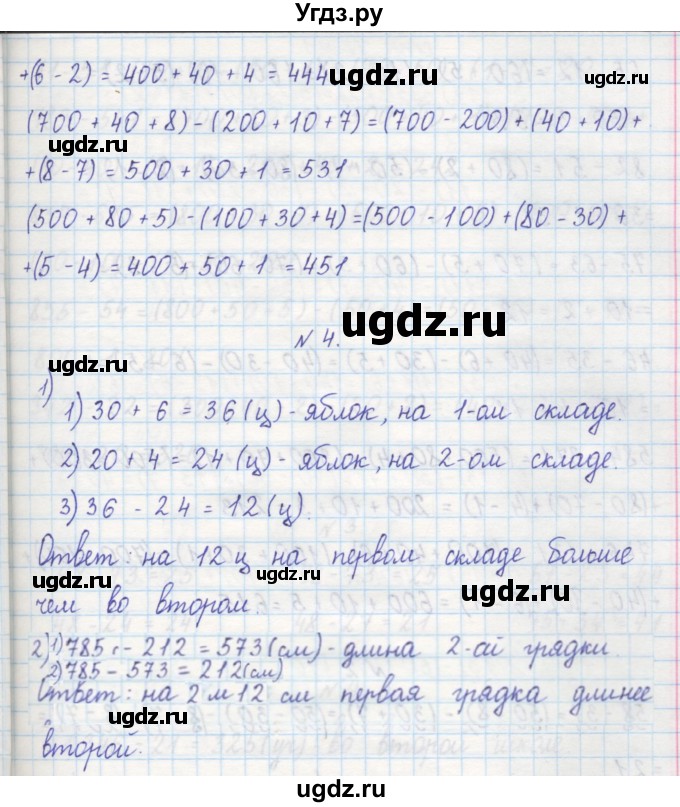 Угдз.ру
+(6 - 2) = 400 + 40 + 4 = 444
ugdz.ru
ugdz.ru
(700 + 40 + 8) - (200 + 10 + 7) = (700 - 200) + (40 + 10) +
ugdz.ru
+(8 - 7) = 500 + 30 + 1 = 531
(500 + 80 + 5) - (100 + 30 + 4) = (500 - 100) + (80 - 30) +
+(5 - 4) = 400 + 50 + 1 = 451
ugdz.ru
N 4.
1)
1) 30 + 6 = 36 (ц) - яблок, на 1-ом складе.
ugdz.ru
2) 20 + 4 = 24 (ц) - яблок, на 2-ом складе.
3) 36 - 24 = 12 (ц).
Ответ: на 12 ц на первом складе больше
ugdz.ru
ugdz.ru
чем во втором.
ugdz.ru
2) 1) 785 - 212 = 573 (см) - длина 2-ой грядки.
2) 785 - 573 = 212 (см)
ugdz.ru
Ответ: на 2 м 12 см первая грядка длинее
второй.
ugdz.ru
ugdz.ru